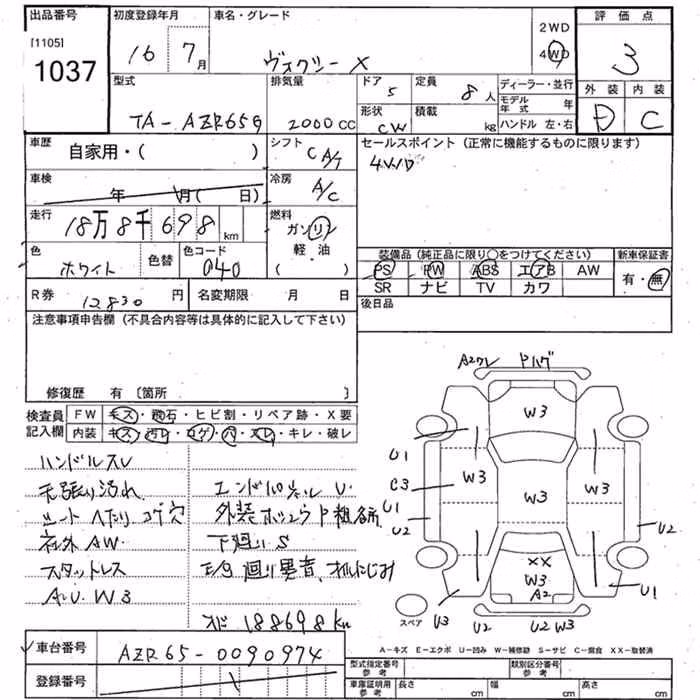 出品番号 初度登録年月 車名・グレード 評価点
[1105] 1037
16 7月 ヴォクシー X
2WD
4WD
3
型式 排気量 ドア 定員 ディーラー・並行 外装 内装
TA-AZR65G 2000cc 5 8人
モデル年式 年
形状 積載
CW kg ハンドル 左・右
D C
車歴 シフト セールスポイント (正常に機能するものに限ります)
自家用・( ) CA/T 4WD
車検 冷房
年 月( 日) A/C
走行 燃料
18万8千698km ガソリン
軽・油
( )
色 色替 色コード
ホワイト 040
装備品(純正品に限り○をつけてください) 新車保証書
PS PW ABS エアB AW 有・無
SR ナビ TV カワ
R券 12830円 名変期限 月 日
後日品
注意事項申告欄(不具合内容等は具体的に記入して下さい)
修復歴 有 〔箇所 〕
検査員記入欄
FW キズ・飛石・ヒビ割・リペア跡・X要
内装 キズ・汚レ・コゲ・穴・スレ・キレ・破レ
ハンドルスレ
天張り汚れ エンドパネルU
シート ヘタリ コゲ穴
社外AW 下廻りS
スタットレス
A.U.W3
188698km
A2ワレ Pハゲ
W3
U1
C3 W3 W3 W3
U1
U2 U2
XX
W3
A2
U1
スペア U3 U2 U2 W3
A-キズ E-エクボ U-凹み W-補修跡 S-サビ C-腐食 XX-取替済
車台番号 AZR65-0090974
登録番号
型式指定番号 参考 類別区分番号 参考
車庫証明用 参考 長さ cm 幅 cm 高さ cm